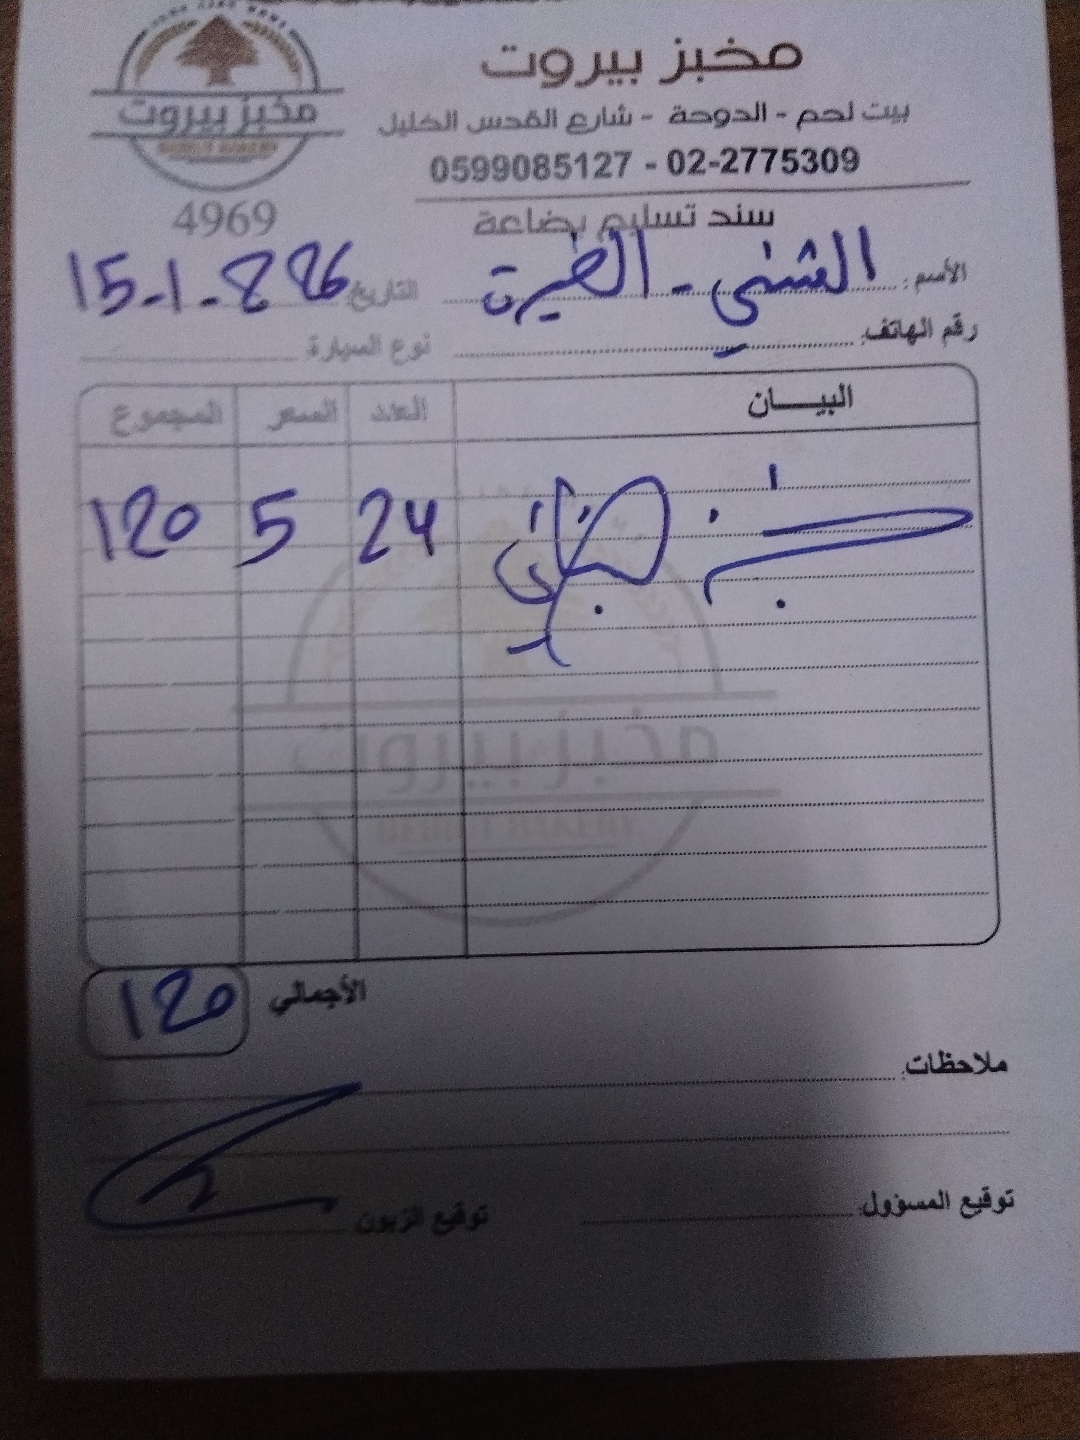 مخبز بيروت
بيت لحم - الدوحة - شارع القدس الخليل
0599085127 - 02-2775309
مخبز بيروت
BEIRUT BAKERY
4969
سند تسليم بضاعة
الأسم: الشني - الخيرة
التاريخ: 15-1-2026
رقم الهاتف:
نوع السيارة:
البيـــان العدد السعر المجموع
خبز 24 5 120
مخبز بيروت
BEIRUT BAKERY
الأجمالي 120
ملاحظات:
توقيع المسؤول
توقيع الزبون